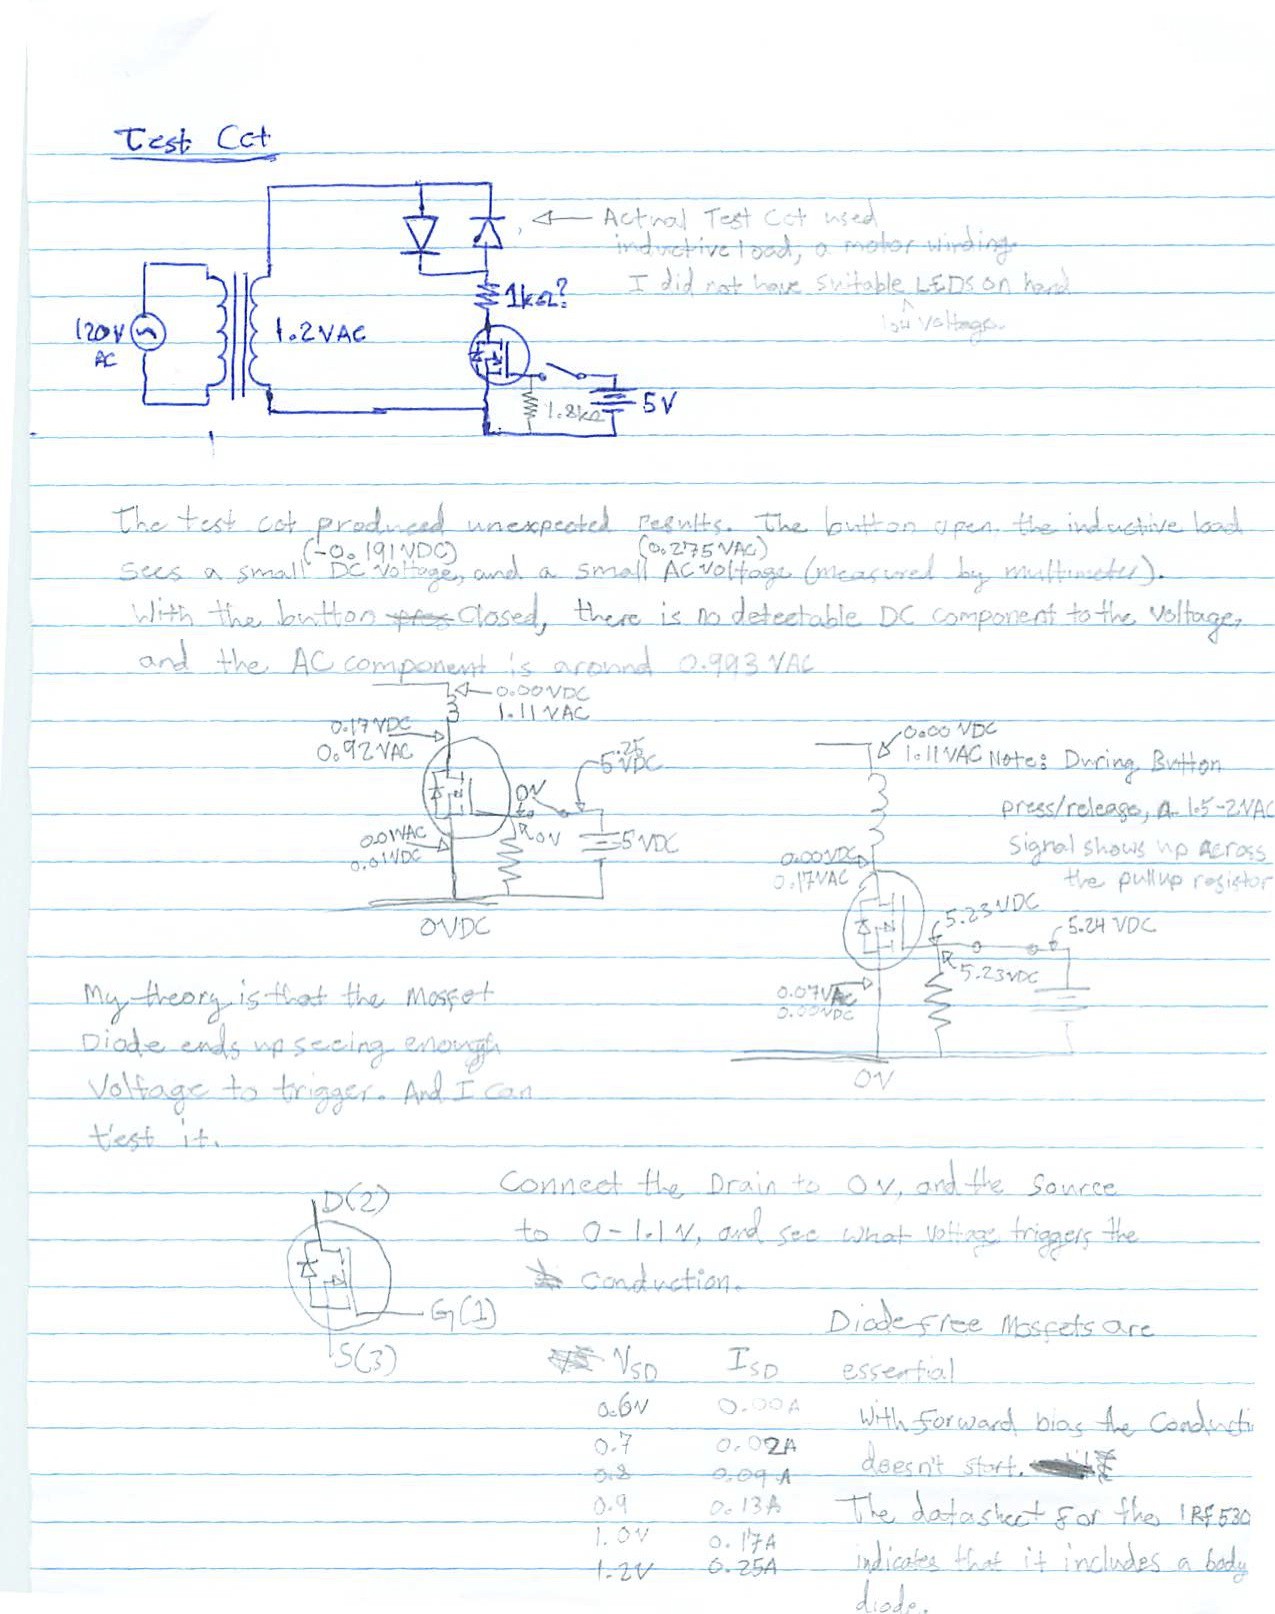 Test Cct
Actual Test Cct used
inductive load, a motor winding.
I did not have suitable LEDS on hand
low voltage.
1kΩ?
120V
AC
1.2VAC
1.8kΩ
5V
The test cct produced unexpected results. The button open, the inductive load
(-0.191VDC) (0.275VAC)
sees a small DC voltage, and a small AC voltage (measured by multimeter).
With the button closed, there is no detectable DC component to the voltage,
and the AC component is around 0.993 VAC
0.00VDC
1.11VAC
0.17VDC
0.92VAC
.25
5VDC
0V
0V
5VDC
0.01VAC
0.01VDC
0VDC
0.00VDC
1.11VAC Note: During Button
press/release, a 1.5-2VAC
Signal shows up across
the pullup resistor
0.00VDC
0.17VAC
5.23VDC
5.24 VDC
5.23VDC
0.07VAC
0.00VDC
0V
My theory is that the Mosfet
Diode ends up seeing enough
Voltage to trigger. And I can
test it.
Connect the Drain to 0V, and the Source
to 0-1.1V, and see what voltage triggers the
conduction.
D(2)
G(1)
S(3)
Diode free Mosfets are
essential
With forward bias the Conducti
doesn't start.
The datasheet for the IRF530
indicates that it includes a body
diode.
VSD ISD
0.6V 0.00A
0.7 0.02A
0.8 0.09A
0.9 0.13A
1.0V 0.17A
1.2V 0.25A